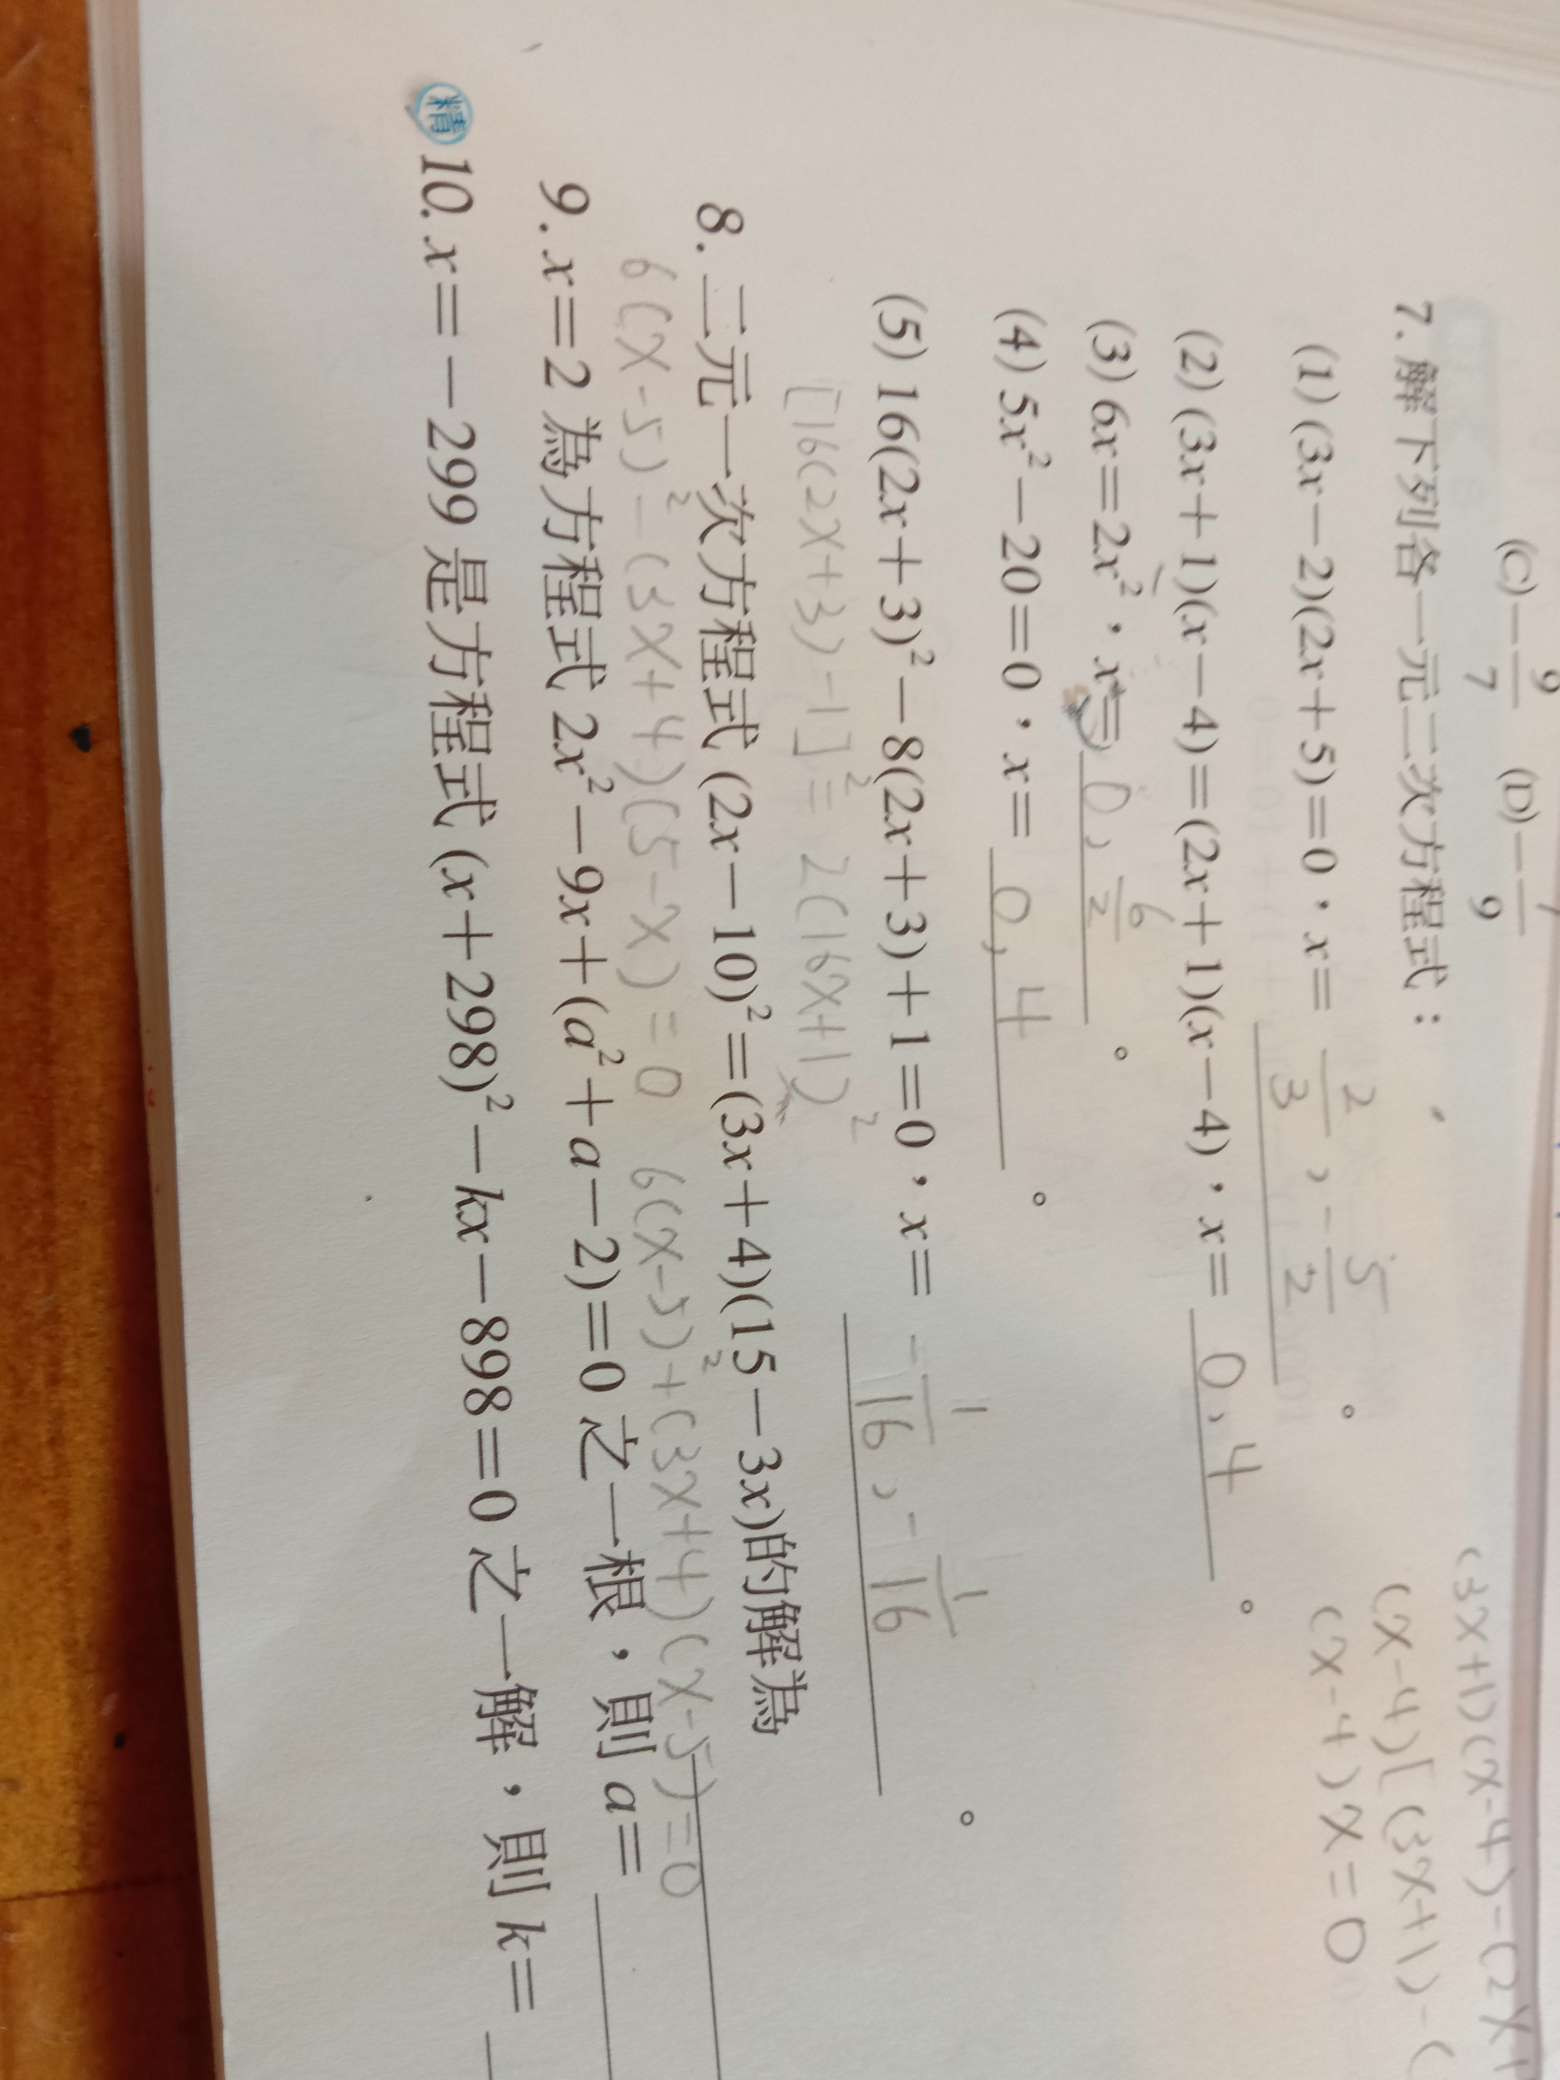 (C)−9/7 (D)−7/9
7. 解下列各一元二次方程式：
(1) (3x−2)(2x+5)=0，x= 2/3 , −5/2 。
(2) (3x+1)(x−4)=(2x+1)(x−4)，x= 0, 4 。
(3x+1)(x-4)=(2x+
(x-4)[(3x+1)-(
(x-4)x=0
(3) 6x=2x²，x= 0, 6/2 。
(4) 5x²−20=0，x= 0, 4 。
(5) 16(2x+3)²−8(2x+3)+1=0，x= −1/16, −1/16 。
[16(2x+3)-1]²= 2(16x+1)²
8. 二元一次方程式 (2x−10)²=(3x+4)(15−3x)的解為
6(x-5)²-(3x+4)(5-x)=0 6(x-5)²+(3x+4)(x-5)=0
9. x=2 為方程式 2x²−9x+(a²+a−2)=0 之一根，則 a=
精 10. x=−299 是方程式 (x+298)²−kx−898=0 之一解，則 k=